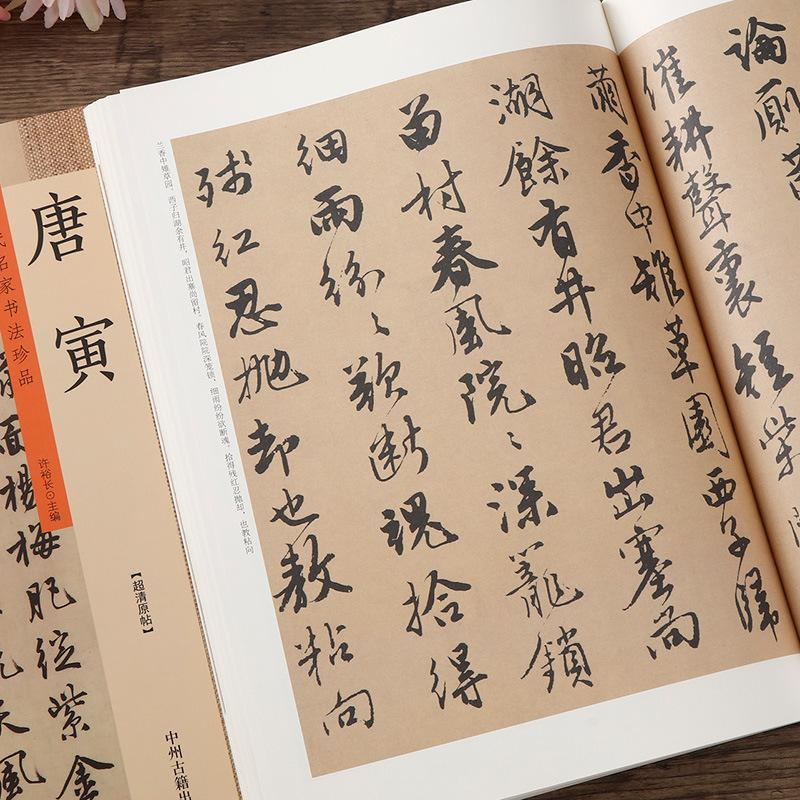 論
催耕聲裏短柴
蘭香中雉草園西子歸
湖餘有井昭君出塞尚
留村春風院〻深籠鎖
細雨紛〻欲斷魂拾得
殘紅忍抛却也教粘向
兰香中雉草园，西子归湖余有井，昭君出塞尚留村，春风院院深笼锁，细雨纷纷欲断魂，拾得残红忍抛却，也教粘向
唐寅
代名家书法珍品
许裕长⊙主编
【超清原帖】
中州古籍出
楊梅肥綻紫金
天風